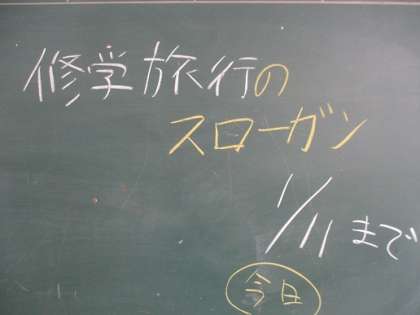 修学旅行の
スローガン
1/11まで
今日